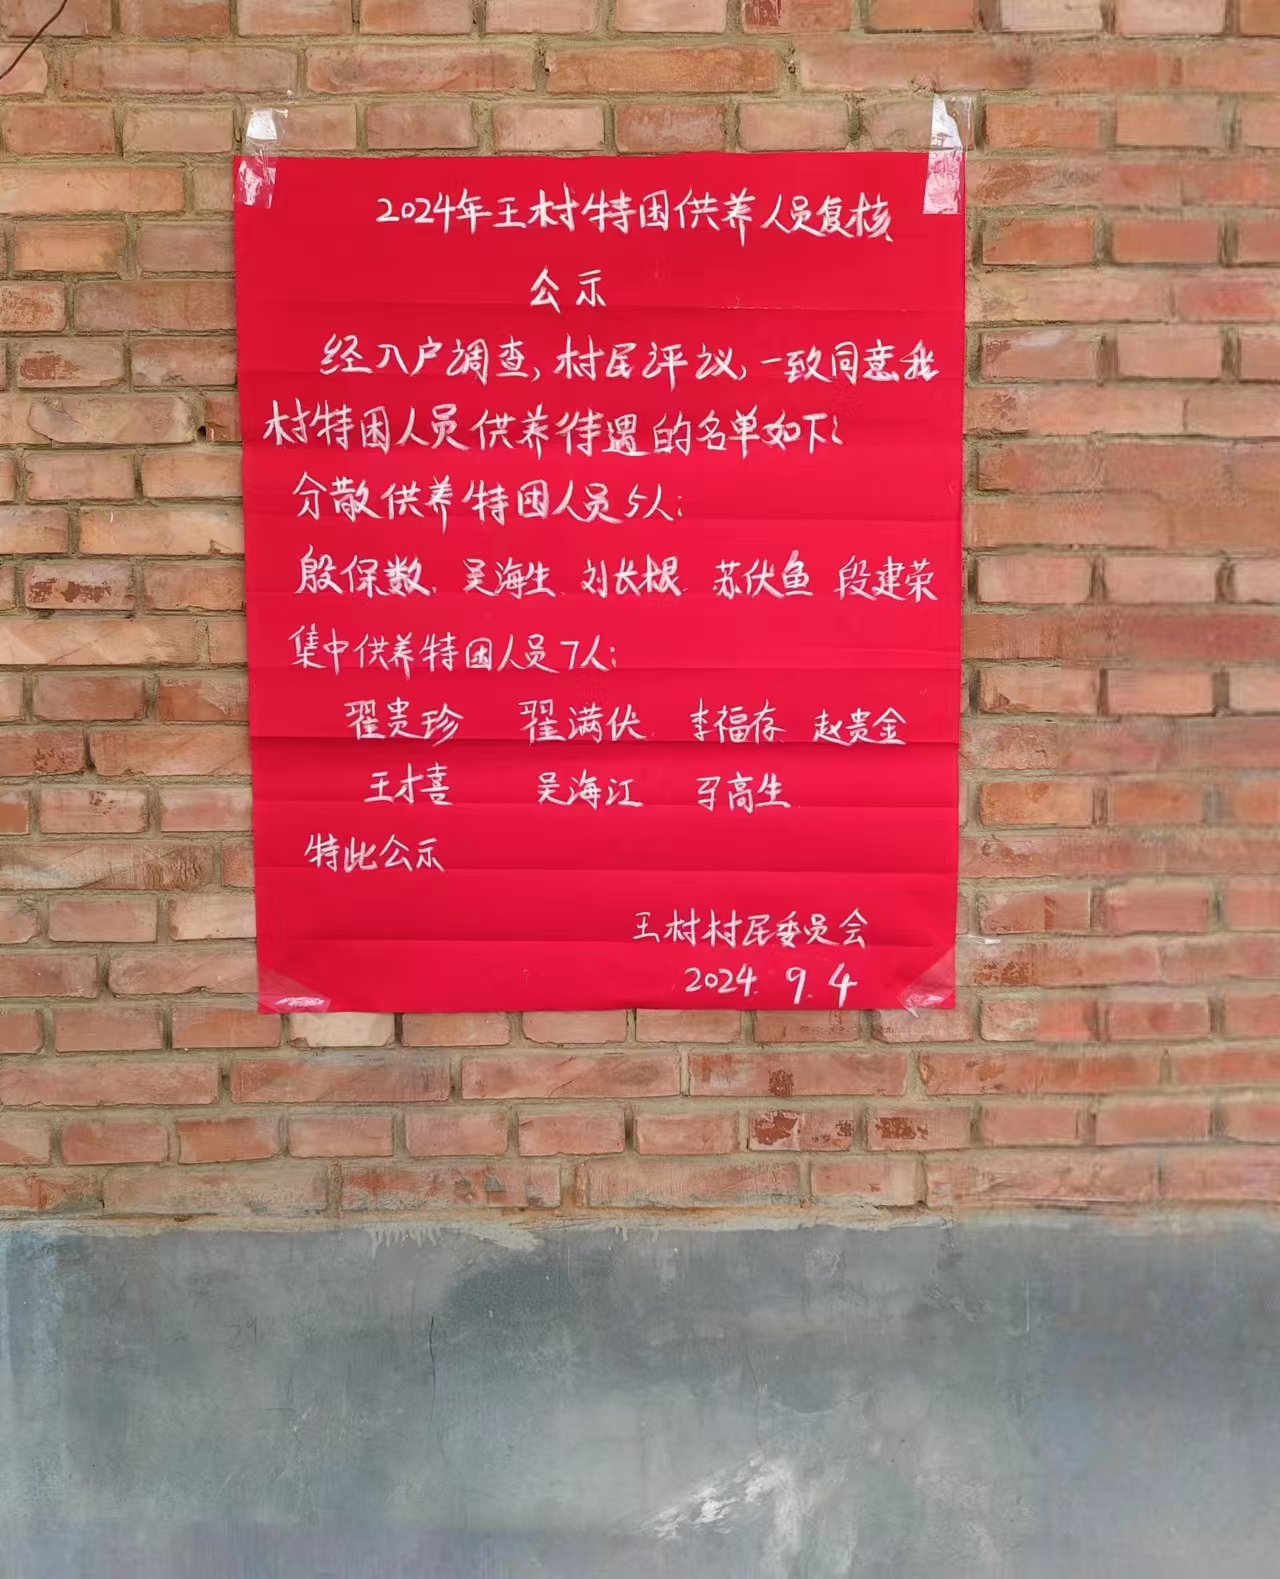 2024年王村特困供养人员复核
公示
经入户调查,村民评议,一致同意我
村特困人员供养待遇的名单如下:
分散供养特困人员5人:
殷保数 吴海生 刘长根 苏伏鱼 段建荣
集中供养特困人员7人:
翟贵珍 翟满伏 李福存 赵贵金
王才喜 吴海江 高生
特此公示
王村村民委员会
2024.9.4